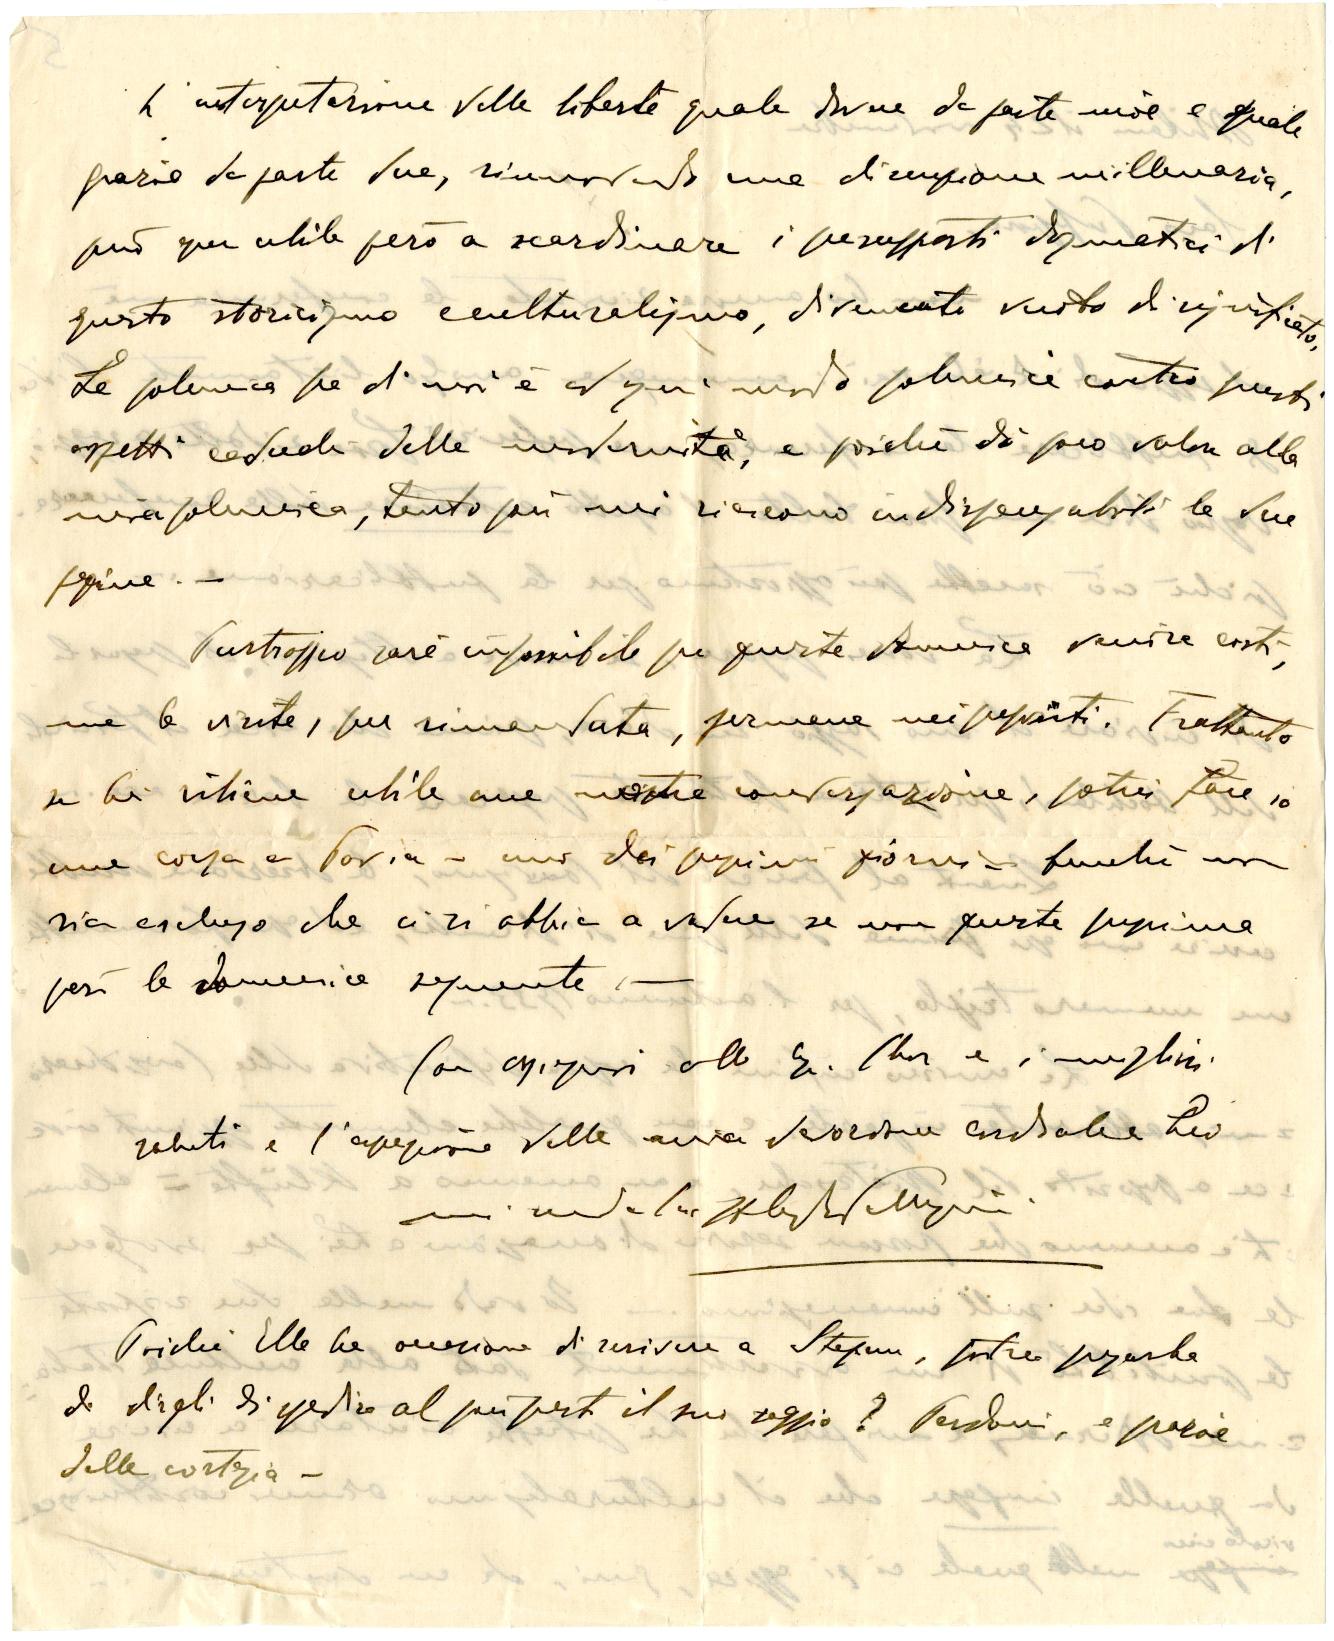 L'interpretazione della libertà quale dovere da parte mia e quale
grazia da parte Sua, rinnovando una discussione millenaria,
può esser utile però a scardinare i presupposti dogmatici di
questo storicismo e culturalismo, diventato vuoto di significato.
La polemica fra di noi è ad ogni modo polemica contro questi
aspetti caduchi della modernità, e poiché dò poco valore alla
mia polemica, tanto più mi riescono indispensabili le Sue
pagine. —
Purtroppo sarà impossibile per questa domenica venire costì,
ma la visita, pur rimandata, permane nei propositi. Frattanto
se Lei ritiene utile una nostra conversazione, potrei fare io
una corsa a Pavia – uno dei prossimi giorni – benché non
sia escluso che ci si abbia a vedere se non questa prossima
però la domenica seguente. —
Con ossequi alla Sig. e i migliori
saluti e l'espressione della mia devozione cordiale a Lei
mi creda Suo
Poiché Ella ha occasione di scrivere a Stefanini, potrei pregarla
di dirgli di spedire al più presto il suo saggio? Perdoni, e grazie
della cortesia –